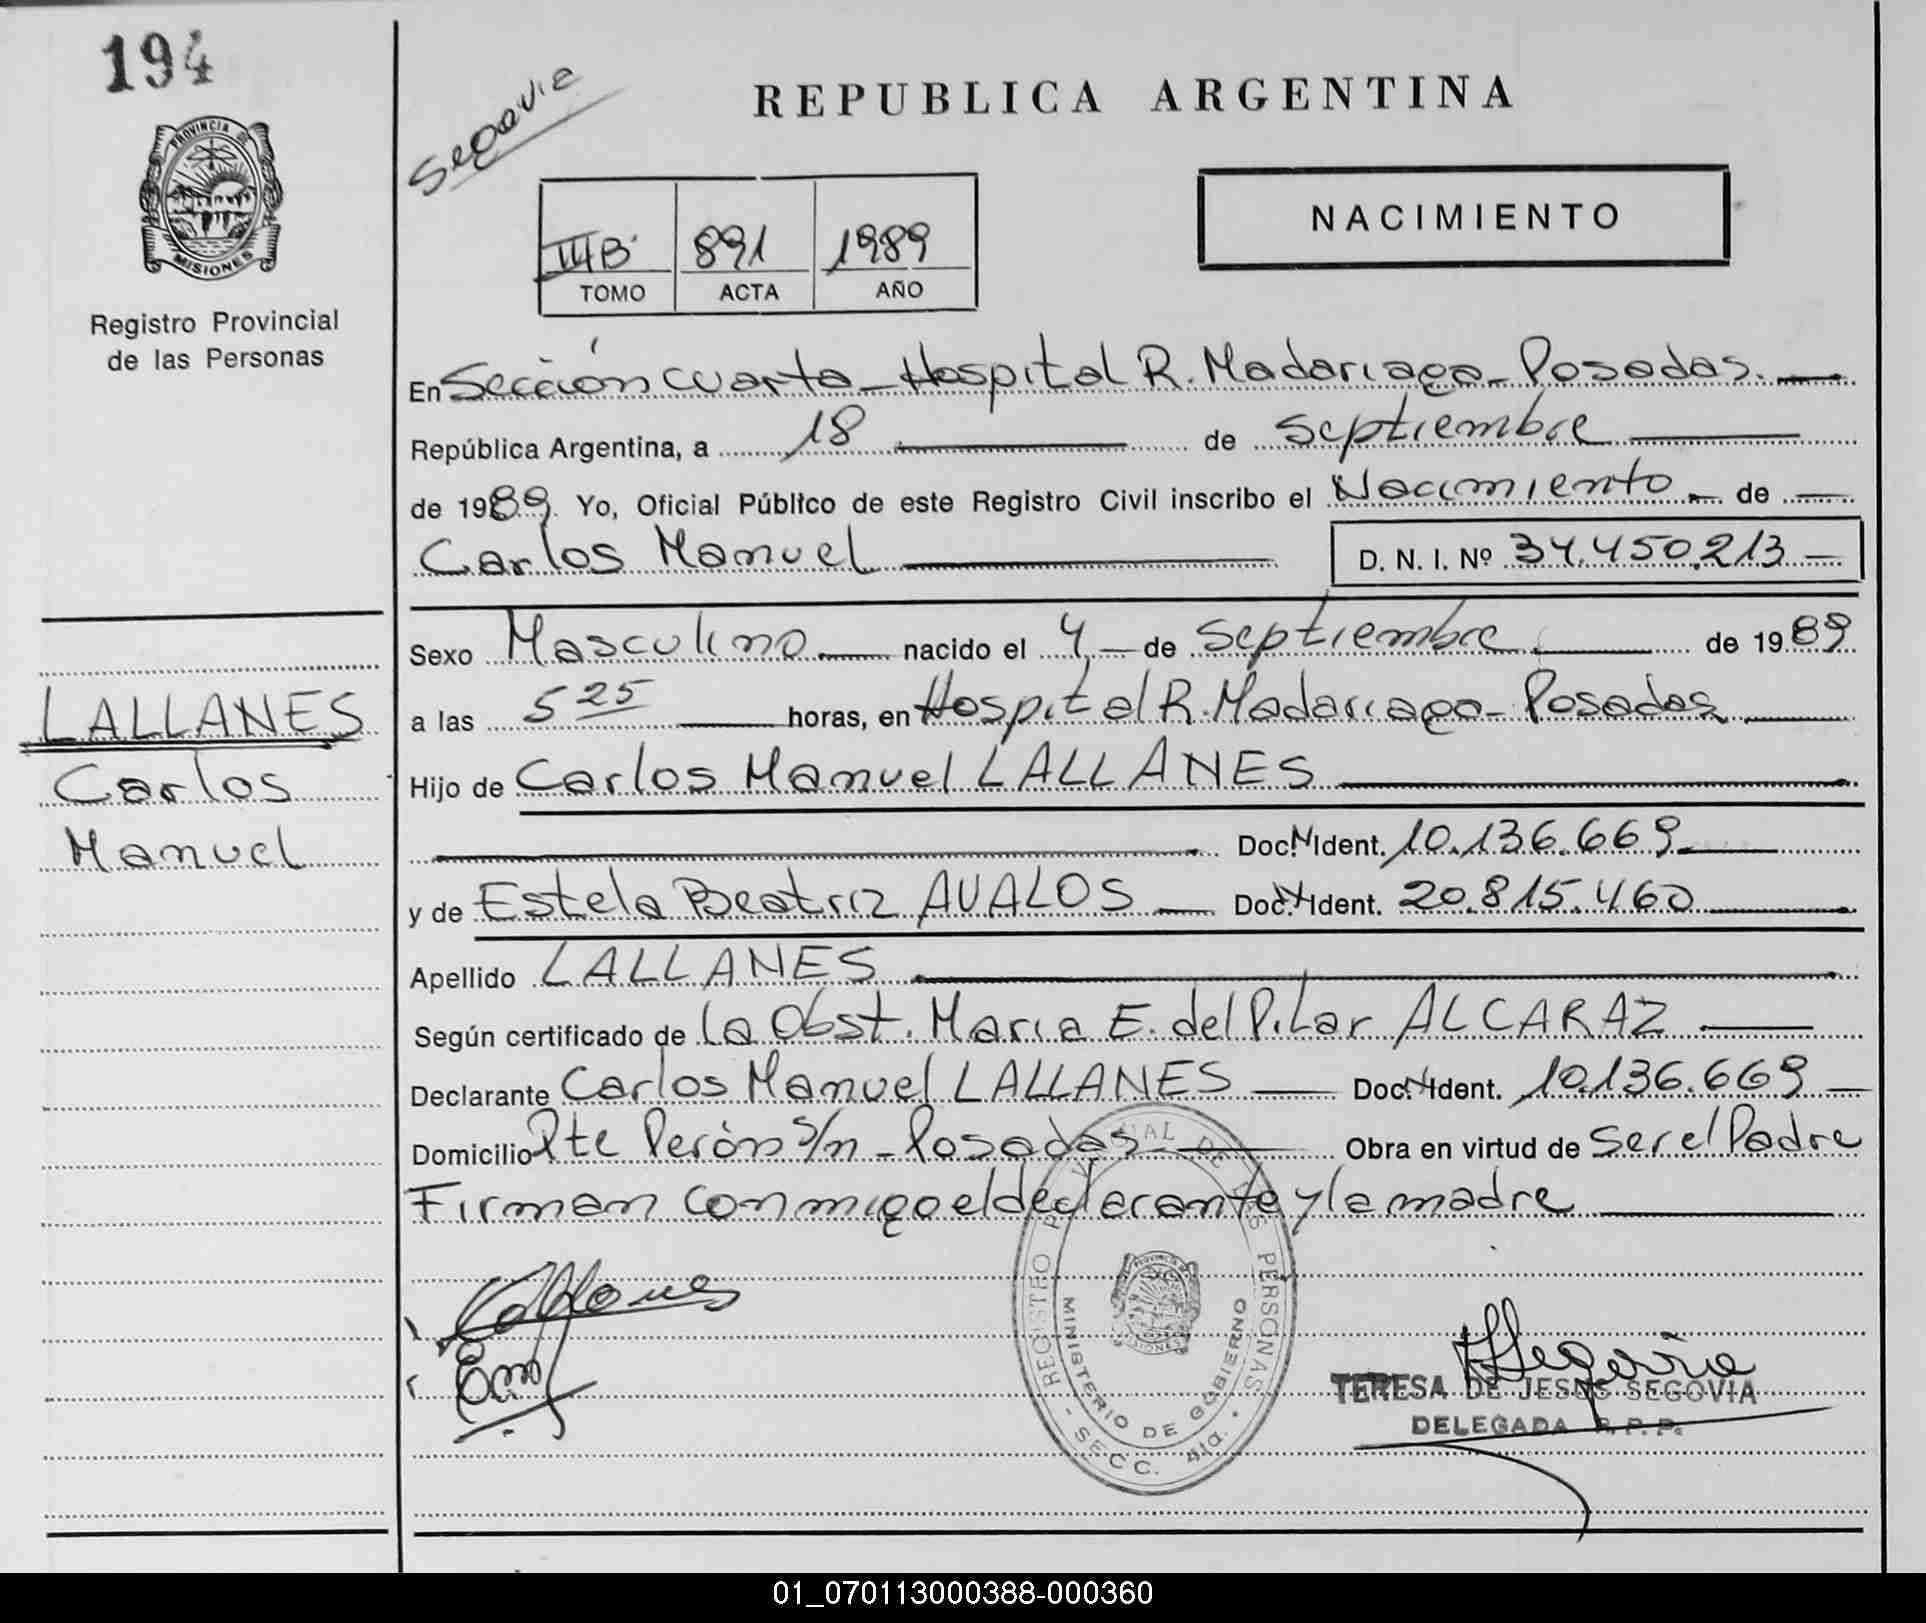 194
Segovia
REPUBLICA ARGENTINA
PROVINCIA DE
MISIONES
Registro Provincial
de las Personas
NACIMIENTO
IIIB 891 1989
TOMO ACTA AÑO
En Sección cuarta - Hospital R. Madariaga - Posadas.
República Argentina, a 18 de Septiembre
de 1989. Yo, Oficial Público de este Registro Civil inscribo el Nacimiento de
Carlos Manuel D. N. I. Nº 34.450.213
Sexo Masculino nacido el 4 de Septiembre de 1989
a las 5 25 horas, en Hospital R. Madariaga - Posadas
Hijo de Carlos Manuel LALLANES
Doc. N Ident. 10.136.669
y de Estela Beatriz AVALOS Doc. N Ident. 20.815.460
Apellido LALLANES
Según certificado de la Obst. Maria E. del Pilar ALCARAZ
Declarante Carlos Manuel LALLANES Doc. N Ident. 10.136.669
Domicilio Pte Perón s/n - Posadas Obra en virtud de Ser el Padre
Firman conmigo el declarante y la madre
LALLANES
Carlos
Manuel
REGISTRO PROVINCIAL DE LAS PERSONAS
MINISTERIO DE GOBIERNO
- SECC. 4ta. -
Segovia
TERESA DE JESUS SEGOVIA
DELEGADA R. P. P.
01_070113000388-000360